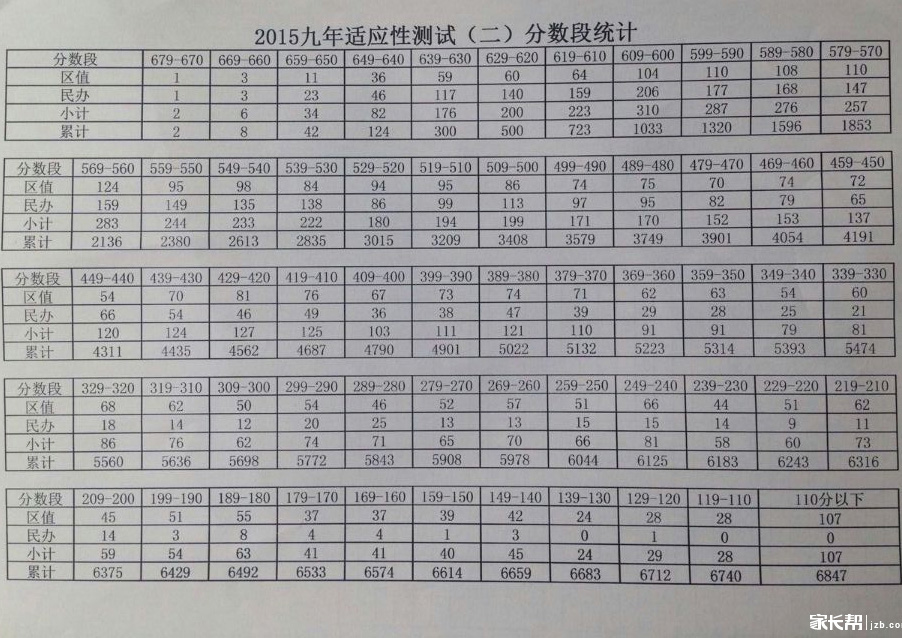 2015九年适应性测试（二）分数段统计
分数段 679-670 669-660 659-650 649-640 639-630 629-620 619-610 609-600 599-590 589-580 579-570
区值 1 3 11 36 59 60 64 104 110 108 110
民办 1 3 23 46 117 140 159 206 177 168 147
小计 2 6 34 82 176 200 223 310 287 276 257
累计 2 8 42 124 300 500 723 1033 1320 1596 1853
分数段 569-560 559-550 549-540 539-530 529-520 519-510 509-500 499-490 489-480 479-470 469-460 459-450
区值 124 95 98 84 94 95 86 74 75 70 74 72
民办 159 149 135 138 86 99 113 97 95 82 79 65
小计 283 244 233 222 180 194 199 171 170 152 153 137
累计 2136 2380 2613 2835 3015 3209 3408 3579 3749 3901 4054 4191
分数段 449-440 439-430 429-420 419-410 409-400 399-390 389-380 379-370 369-360 359-350 349-340 339-330
区值 54 70 81 76 67 73 74 71 62 63 54 60
民办 66 54 46 49 36 38 47 39 29 28 25 21
小计 120 124 127 125 103 111 121 110 91 91 79 81
累计 4311 4435 4562 4687 4790 4901 5022 5132 5223 5314 5393 5474
分数段 329-320 319-310 309-300 299-290 289-280 279-270 269-260 259-250 249-240 239-230 229-220 219-210
区值 68 62 50 54 46 52 57 51 66 44 51 62
民办 18 14 12 20 25 13 13 15 15 14 9 11
小计 86 76 62 74 71 65 70 66 81 58 60 73
累计 5560 5636 5698 5772 5843 5908 5978 6044 6125 6183 6243 6316
分数段 209-200 199-190 189-180 179-170 169-160 159-150 149-140 139-130 129-120 119-110 110分以下
区值 45 51 55 37 37 39 42 24 28 28 107
民办 14 3 8 4 4 1 3 0 1 0 0
小计 59 54 63 41 41 40 45 24 29 28 107
累计 6375 6429 6492 6533 6574 6614 6659 6683 6712 6740 6847
家长帮 jzb.co